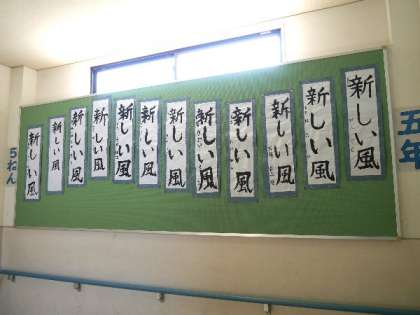 五年
新しい風
新しい風
新しい風
新しい風
新しい風
新しい風
新しい風
新しい風
新しい風
新しい風
新しい風
新しい風
5ねん